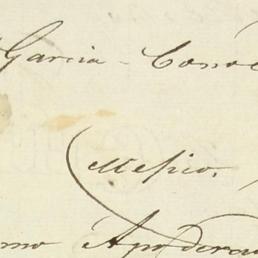 Garcia - Conde
Mejico.
como Apoderad